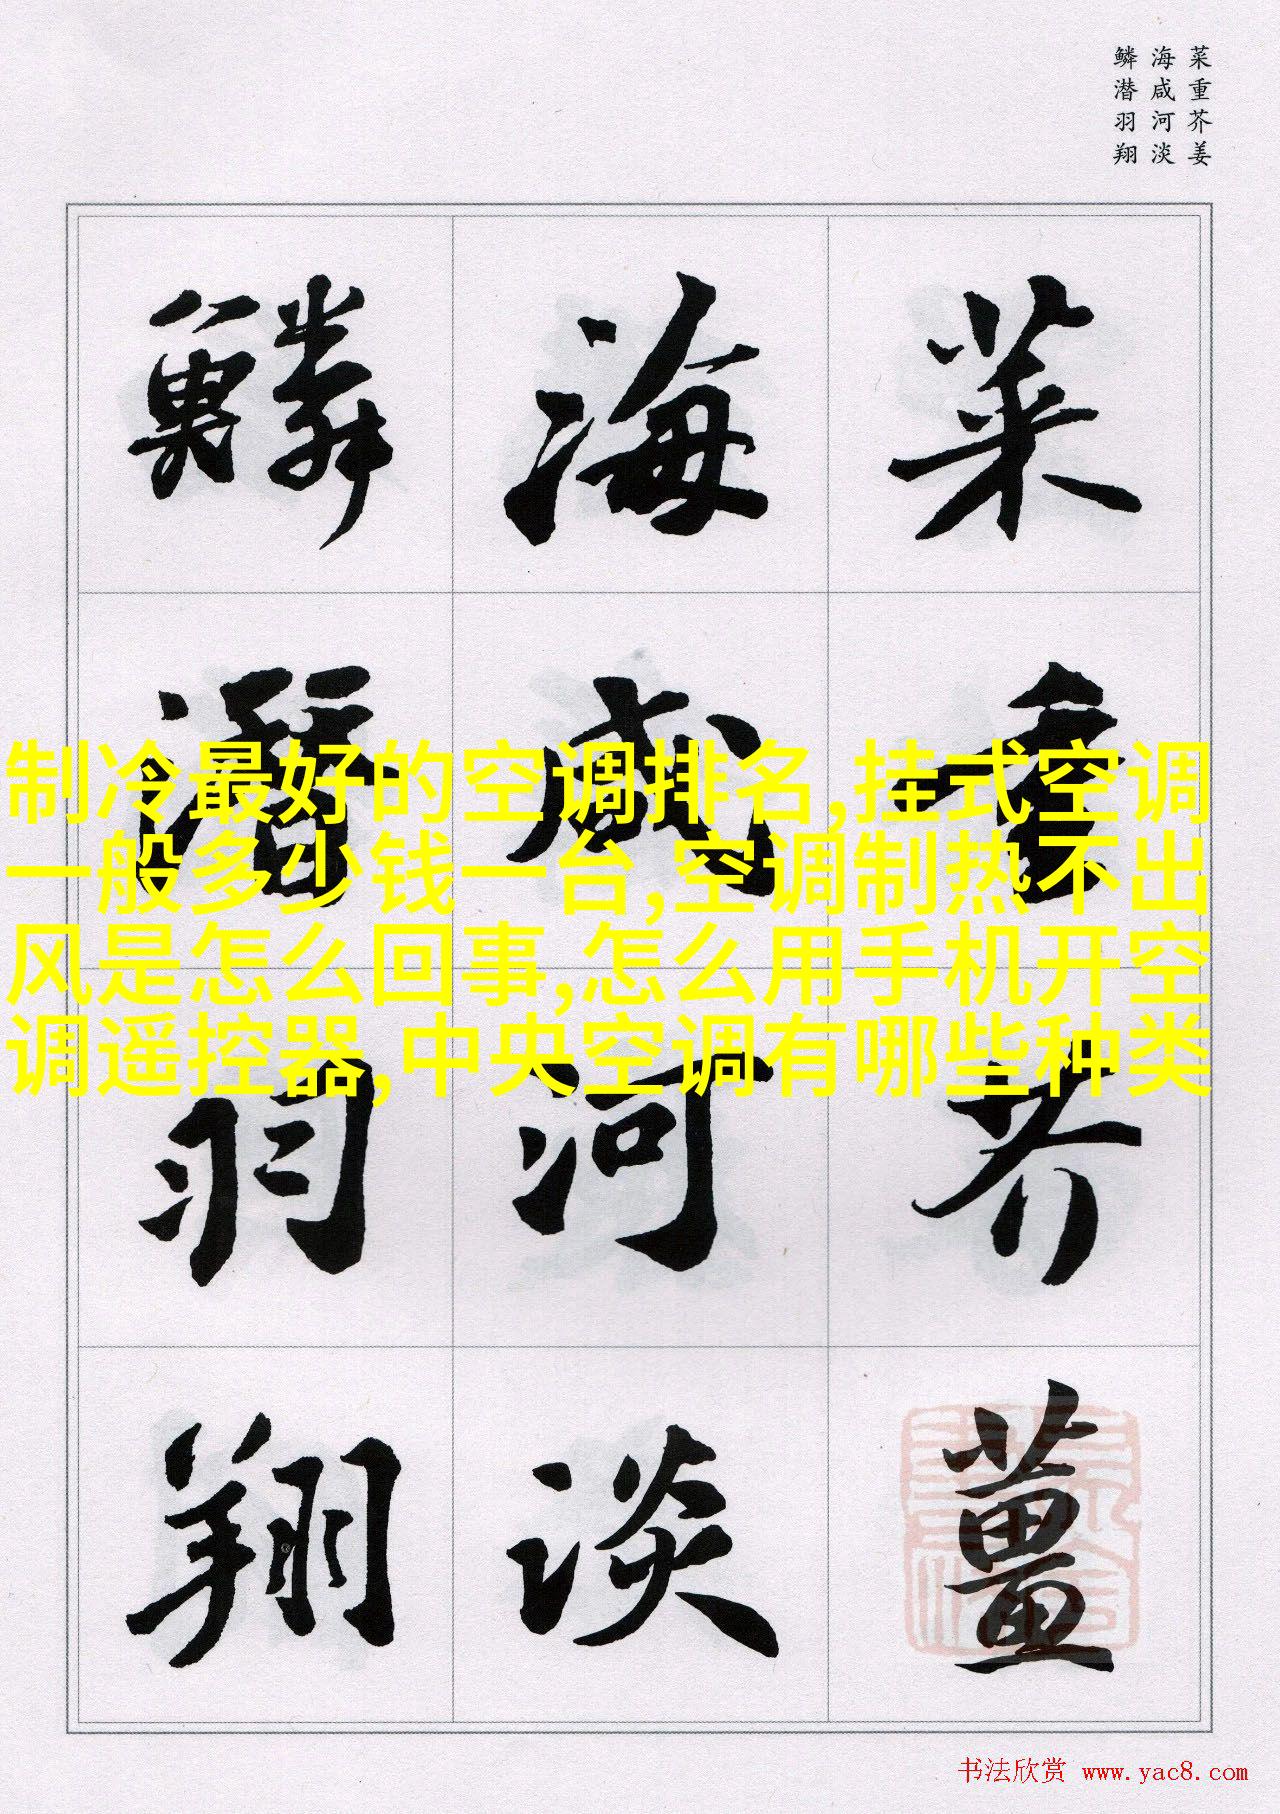 菜重芥姜
海咸河淡
鳞潜羽翔
菜重芥薑
海咸河淡
鳞潜羽翔
制冷最好的空调排名,挂式空调
一般多少钱一台,空调制热不出
风是怎么回事,怎么用手机开空
调遥控器,中央空调有哪些种类
书法欣赏 www.yac8.com